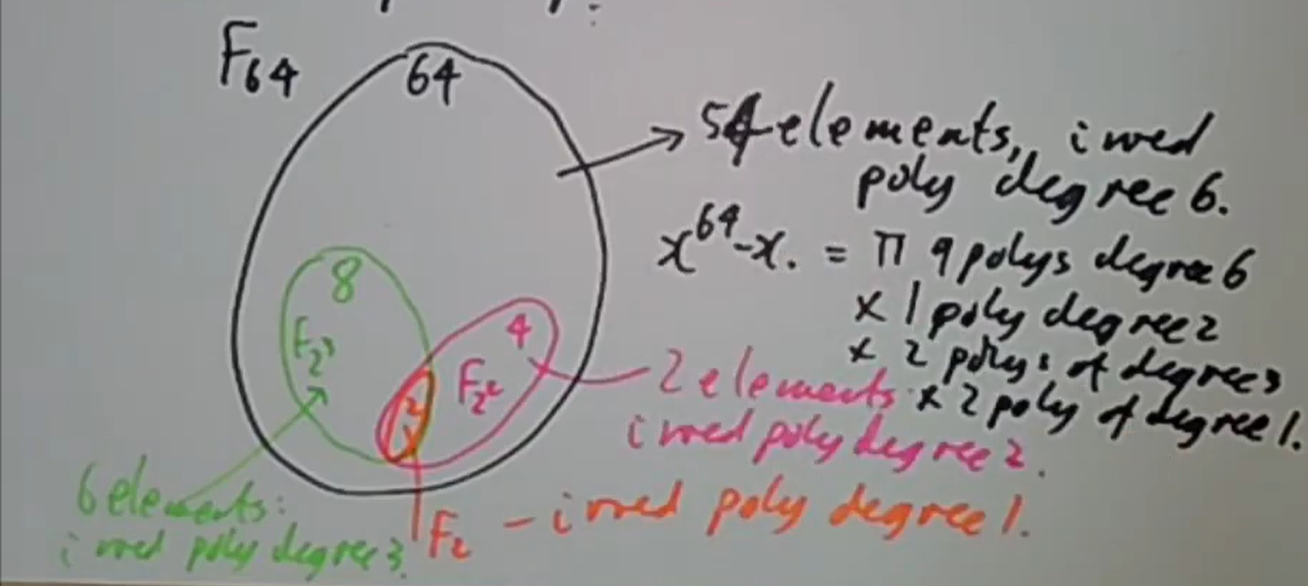 F₆₄
64
54 elements, irred
poly degree 6.
x⁶⁴-x. = Π 9 polys degree 6
x 1 poly degree 2
x 2 polys of degree 3
x 2 poly of degree 1.
8
F₂³
4
F₂²
2
2 elements
irred poly degree 2.
6 elements:
irred poly degree 3.
F₂ - irred poly degree 1.